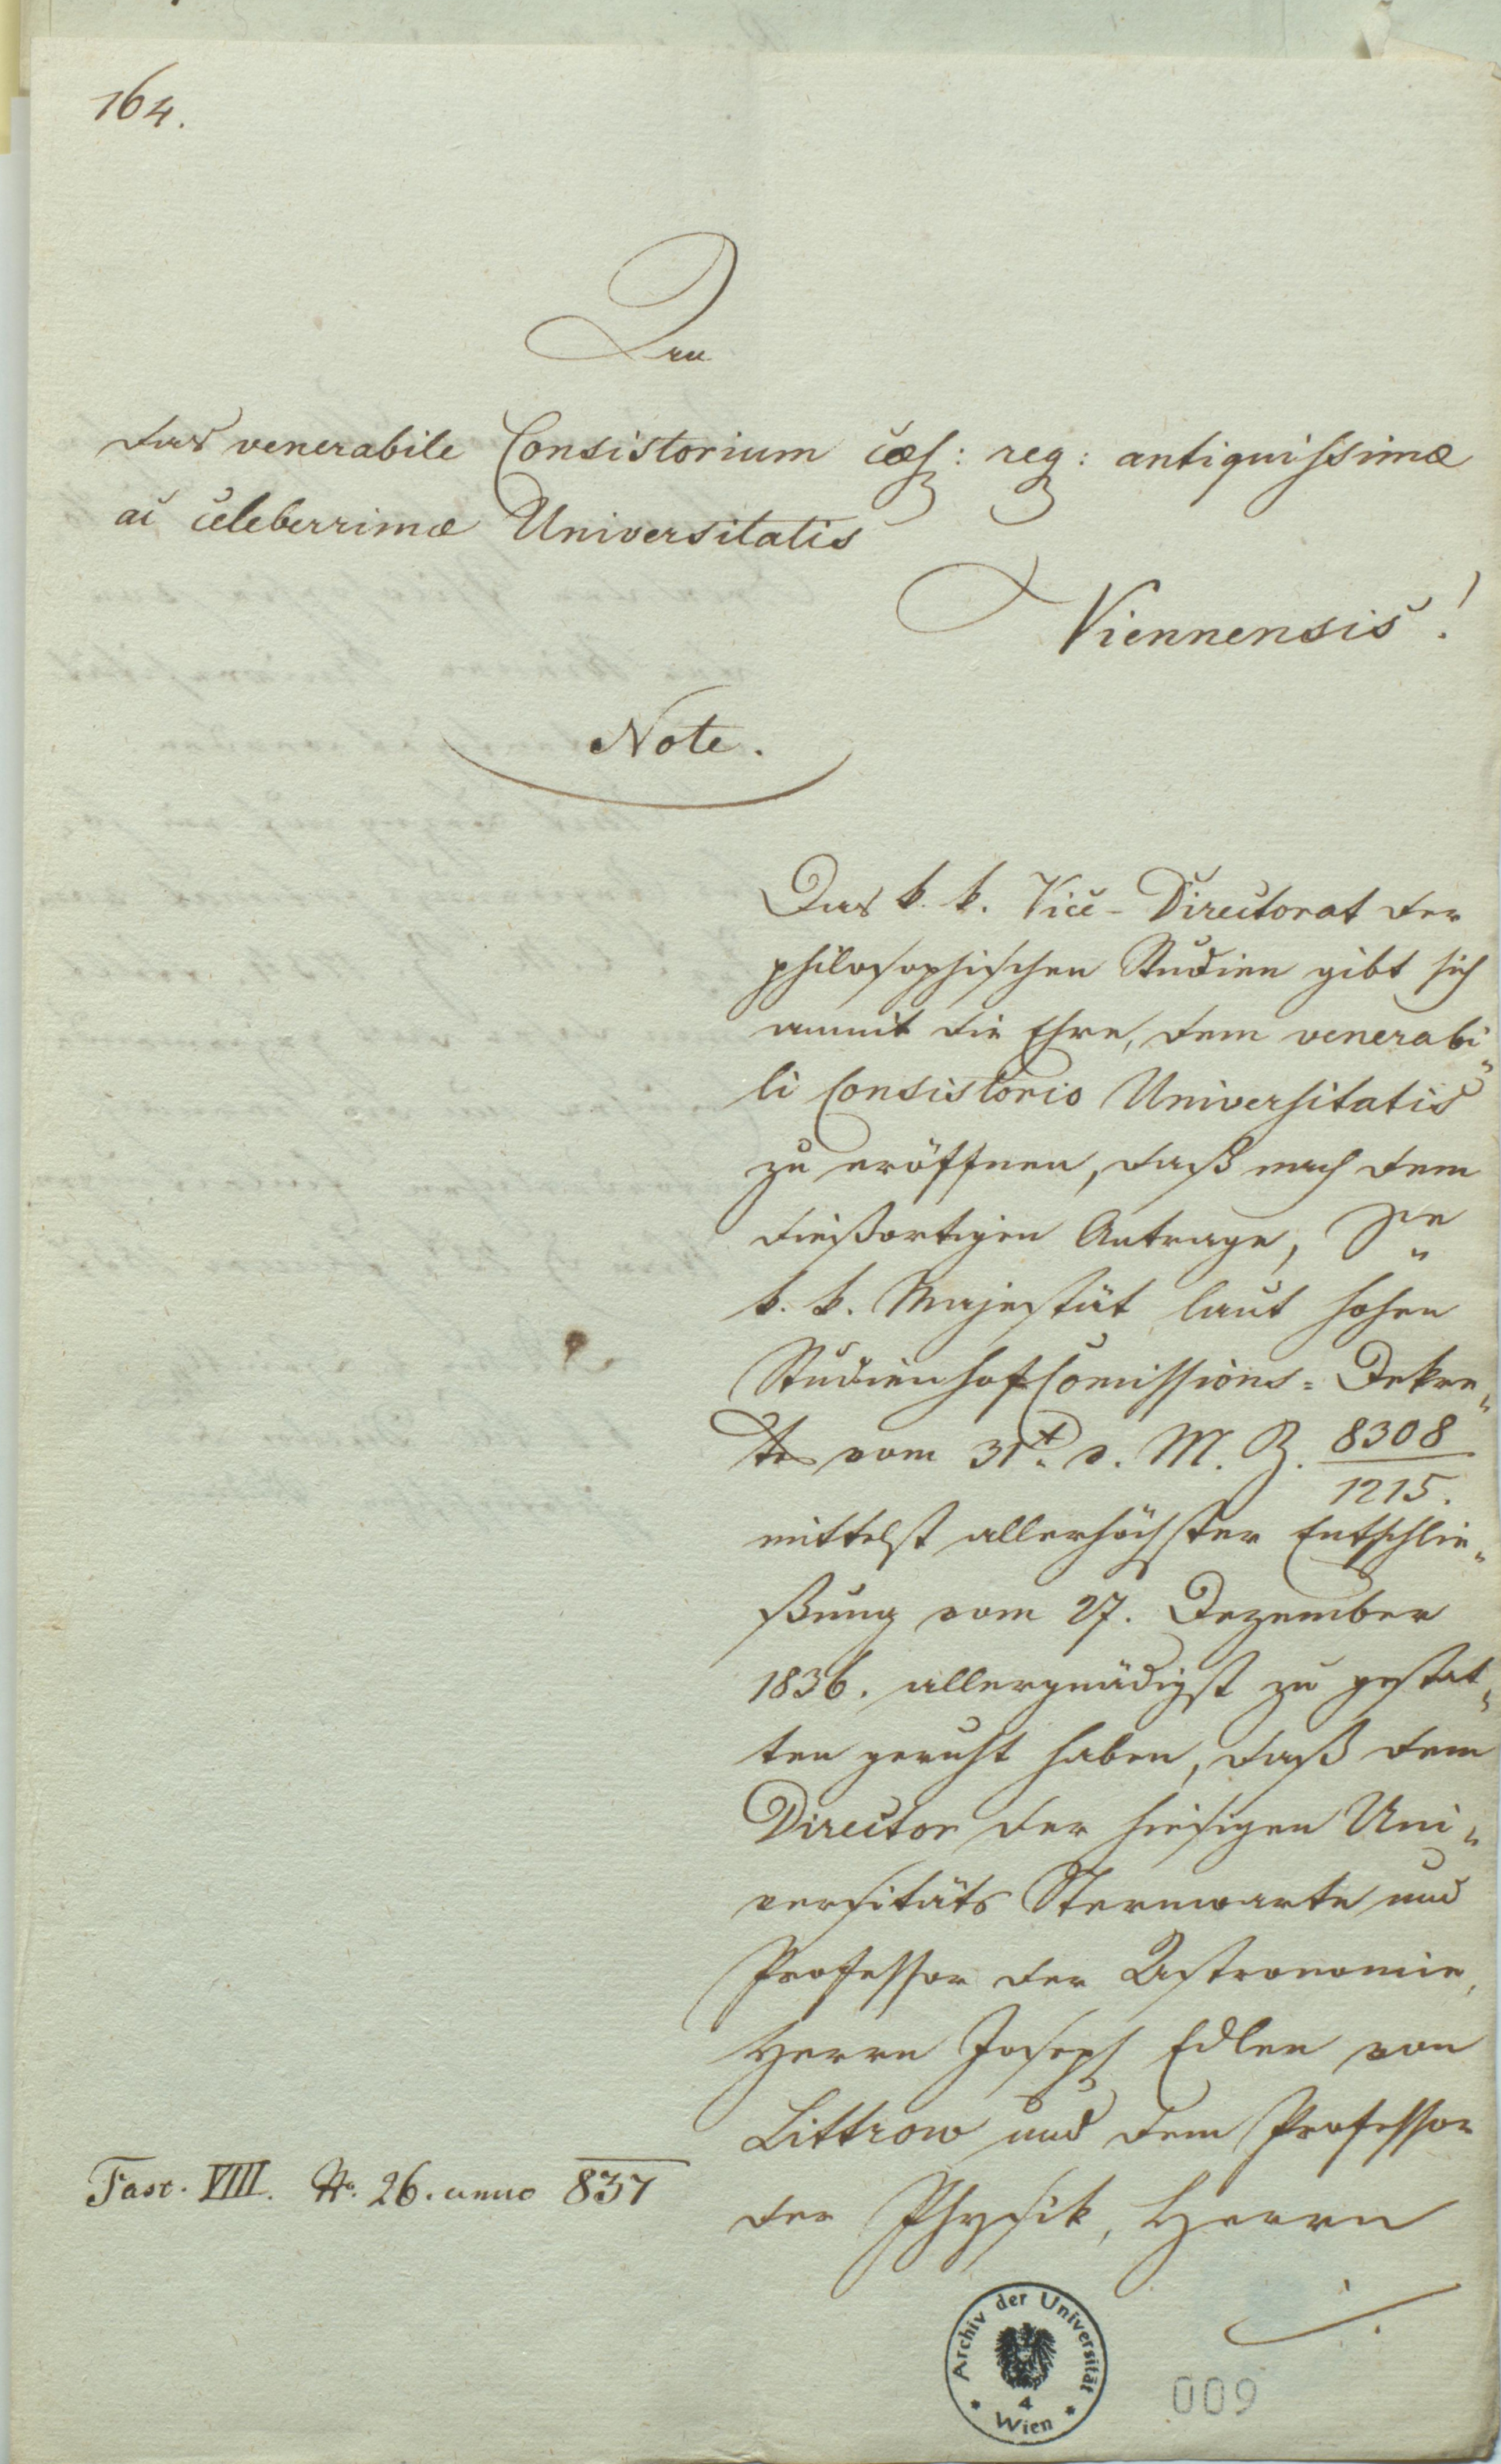 164.
An
das venerabile Consistorium caes: reg: antiquissimae
ac celeberrimae Universitatis
Viennensis!
Note.
Das k. k. Vice-Directorat der
philosophischen Studien gibt sich
anmit die Ehre, dem venerabi„
li Consistorio Universitatis
zu eröffnen, daß nach dem
dießortigen Antrage, Se
k. k. Majestät laut hohen
Studienhofcomissions=Dekre„
tes vom 31t. v. M. Z. 8308
1215.
mittelst allerhöchster Entschlie„
ßung vom 27. Dezember
1836. allergnädigst zu gestat„
ten geruht haben, daß dem
Director der hiesigen Uni„
versitäts Sternwarte und
Professor der Astronomie,
Herrn Joseph Edlen von
Littrow und dem Professor
der Physik, Herrn
Fasc. VIII. No. 26. anno 837
Archiv der Universität
4
Wien
009